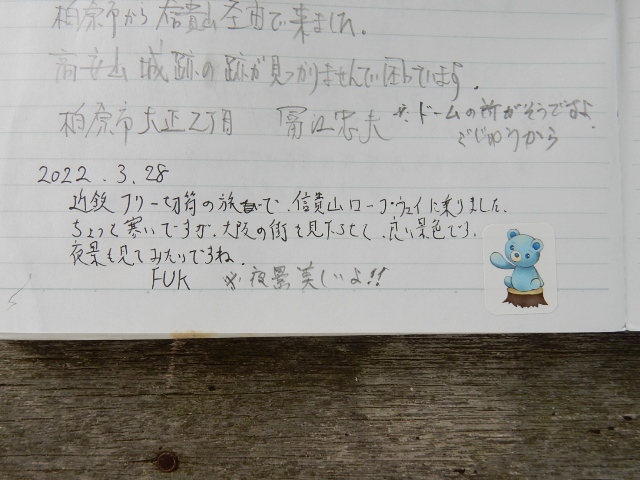 柏原市から信貴山 経由で来ました。
高安山 城跡の跡が見つかりませんで困っています。
柏原市大正2丁目 ※ドームの所がそうですよ
2022.3.28
近鉄フリー切符の旅で、信貴山ロープウェイに乗りました。
ちょっと寒いですが、大阪の街を見下ろせて、良い景色です。
夜景も見てみたいですね。
FUK ※夜景美しいよ!!